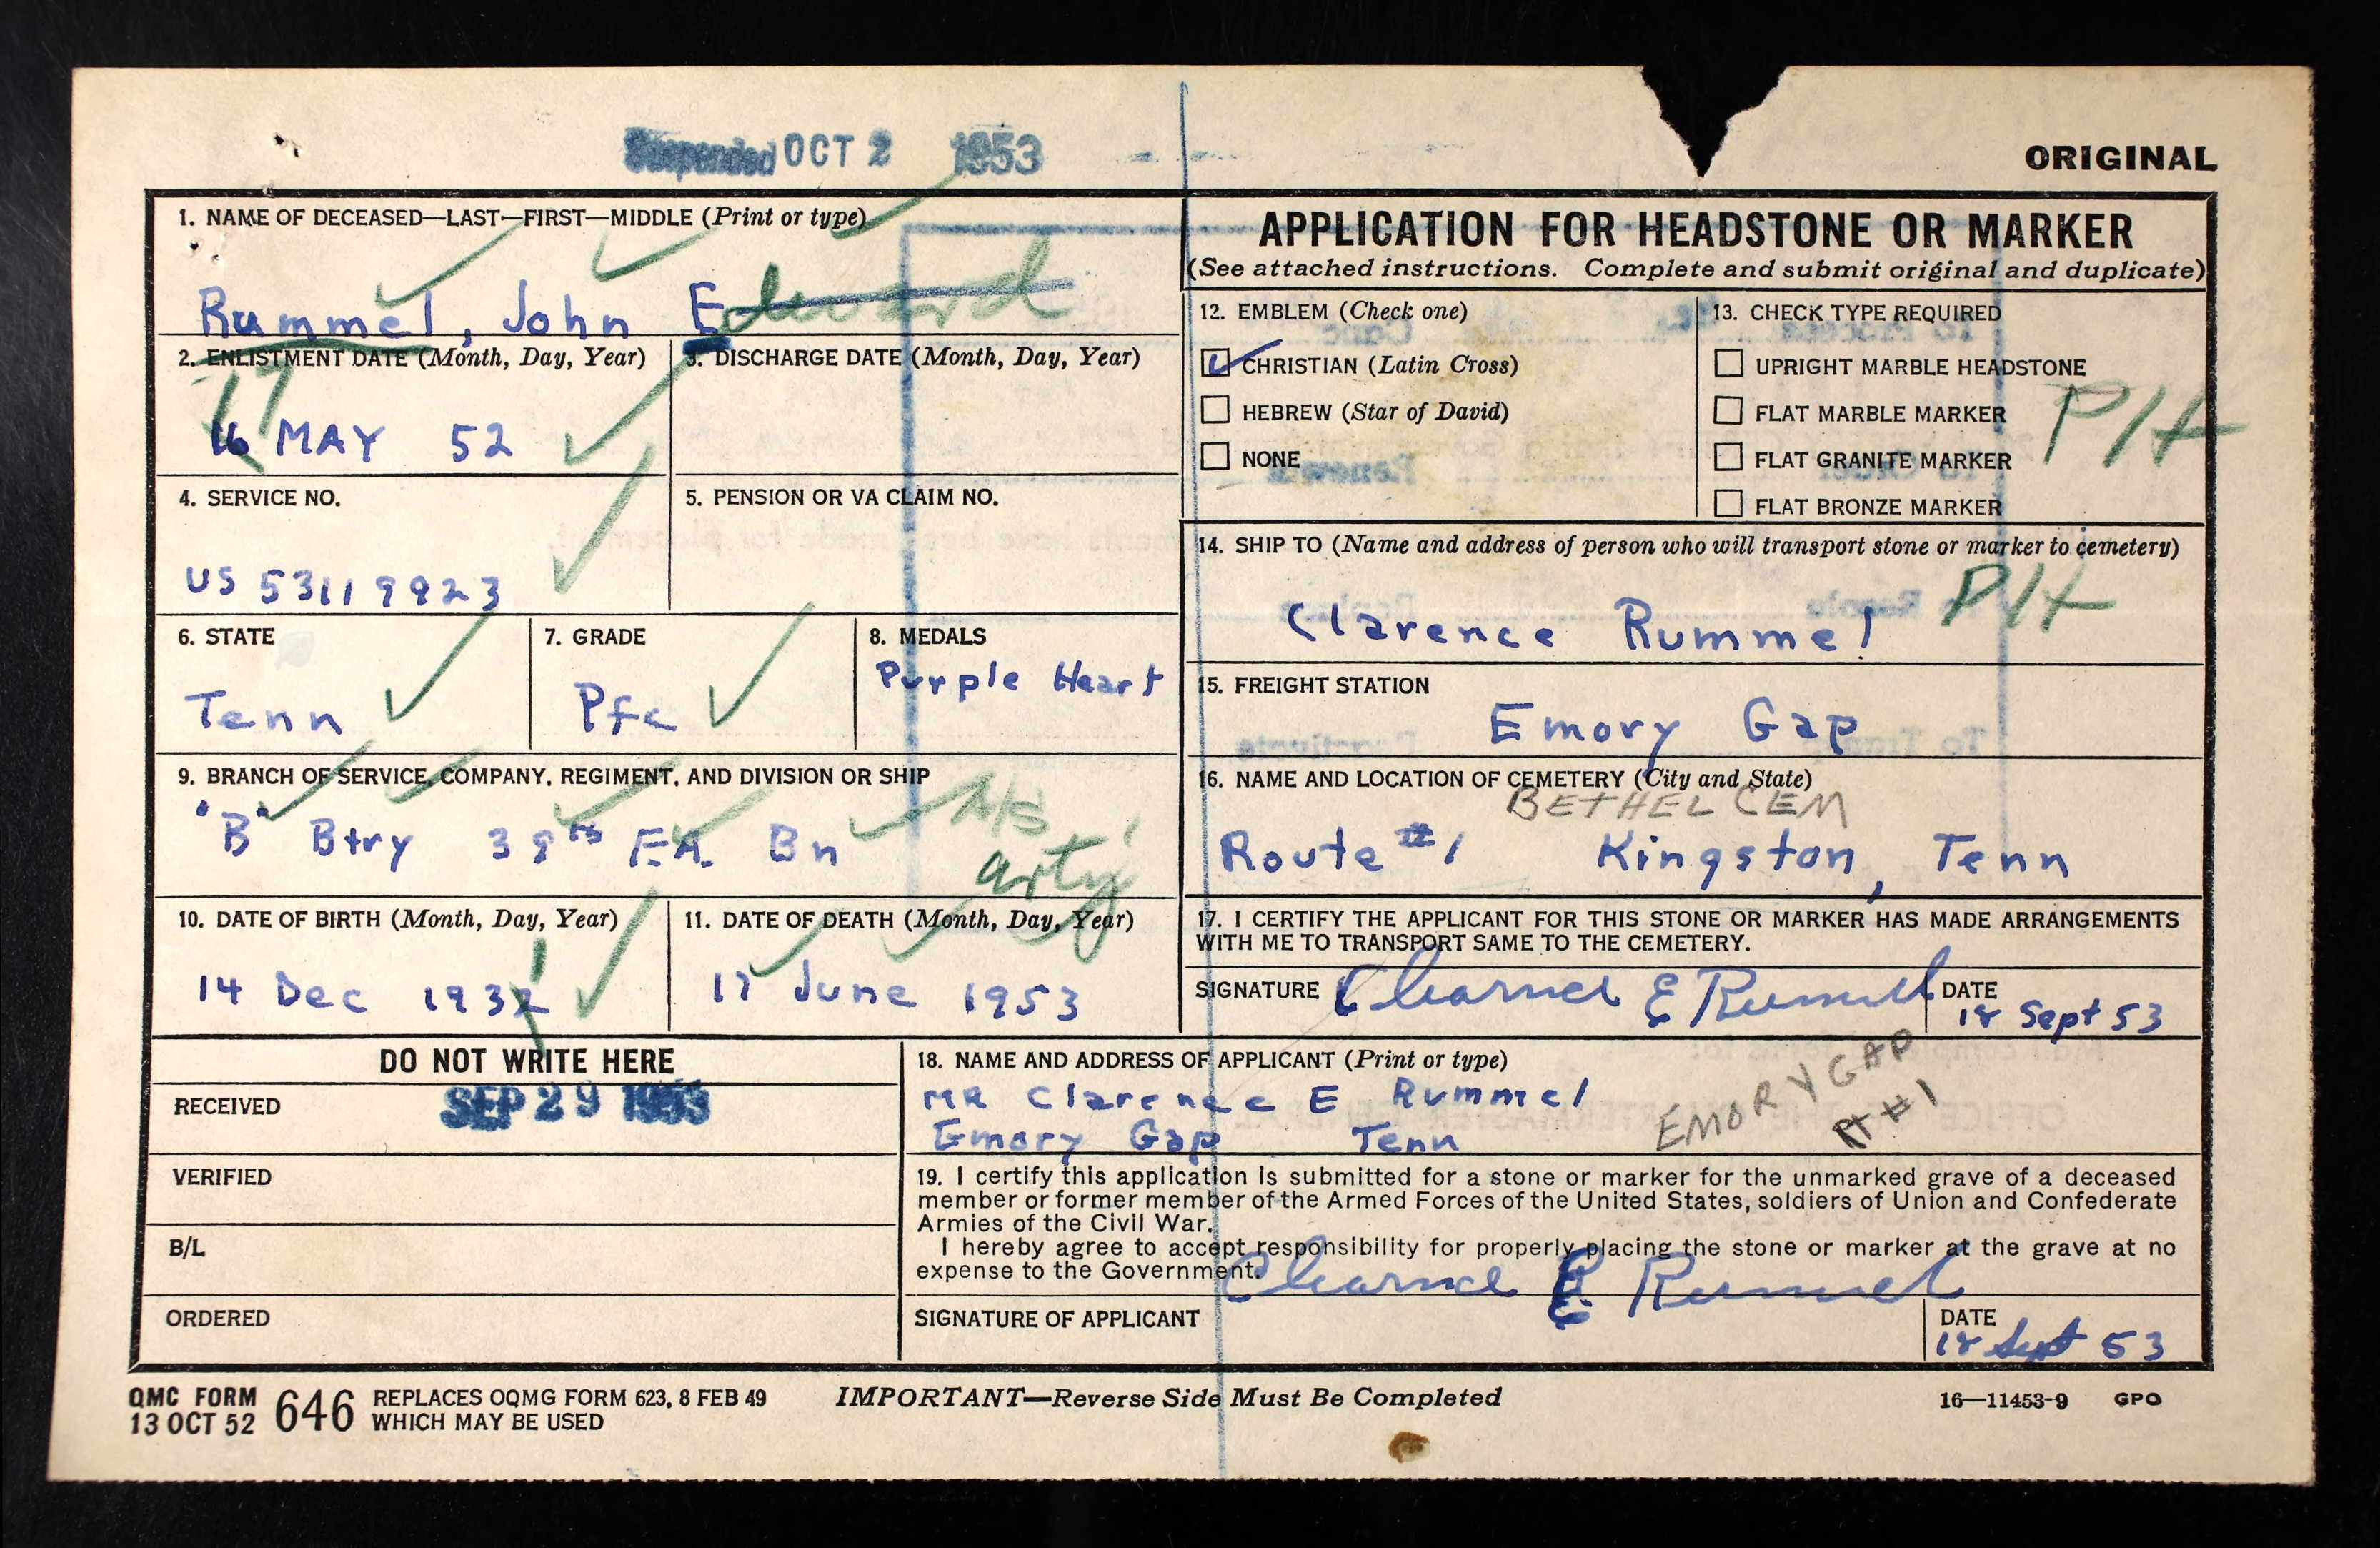 Suspended OCT 2 1953
ORIGINAL
1. NAME OF DECEASED—LAST—FIRST—MIDDLE (Print or type)
Rummel, John Edward
2. ENLISTMENT DATE (Month, Day, Year)
17
16 MAY 52
3. DISCHARGE DATE (Month, Day, Year)
4. SERVICE NO.
US 53119923
5. PENSION OR VA CLAIM NO.
6. STATE
Tenn
7. GRADE
Pfc
8. MEDALS
Purple Heart
9. BRANCH OF SERVICE, COMPANY, REGIMENT, AND DIVISION OR SHIP
"B" Btry 39th F.A. Bn
arty
10. DATE OF BIRTH (Month, Day, Year)
14 Dec 1932
1
11. DATE OF DEATH (Month, Day, Year)
17 June 1953
APPLICATION FOR HEADSTONE OR MARKER
(See attached instructions. Complete and submit original and duplicate)
12. EMBLEM (Check one)
CHRISTIAN (Latin Cross)
HEBREW (Star of David)
NONE
13. CHECK TYPE REQUIRED
UPRIGHT MARBLE HEADSTONE
FLAT MARBLE MARKER
FLAT GRANITE MARKER
FLAT BRONZE MARKER
PH
14. SHIP TO (Name and address of person who will transport stone or marker to cemetery)
PH
Clarence Rummel
15. FREIGHT STATION
Emory Gap
16. NAME AND LOCATION OF CEMETERY (City and State)
BETHEL CEM
Route #1 Kingston, Tenn
17. I CERTIFY THE APPLICANT FOR THIS STONE OR MARKER HAS MADE ARRANGEMENTS
WITH ME TO TRANSPORT SAME TO THE CEMETERY.
SIGNATURE Clarence E Rummel
DATE
18 Sept 53
DO NOT WRITE HERE
RECEIVED SEP 29 1953
VERIFIED
B/L
ORDERED
18. NAME AND ADDRESS OF APPLICANT (Print or type)
MR Clarence E Rummel
Emory Gap Tenn
EMORY GAP
Rt #1
19. I certify this application is submitted for a stone or marker for the unmarked grave of a deceased
member or former member of the Armed Forces of the United States, soldiers of Union and Confederate
Armies of the Civil War.
I hereby agree to accept responsibility for properly placing the stone or marker at the grave at no
expense to the Government.
Clarence E Rummel
SIGNATURE OF APPLICANT
DATE
18 Sept 53
QMC FORM
13 OCT 52
646
REPLACES OQMG FORM 623, 8 FEB 49
WHICH MAY BE USED
IMPORTANT—Reverse Side Must Be Completed
16—11453-9 GPO